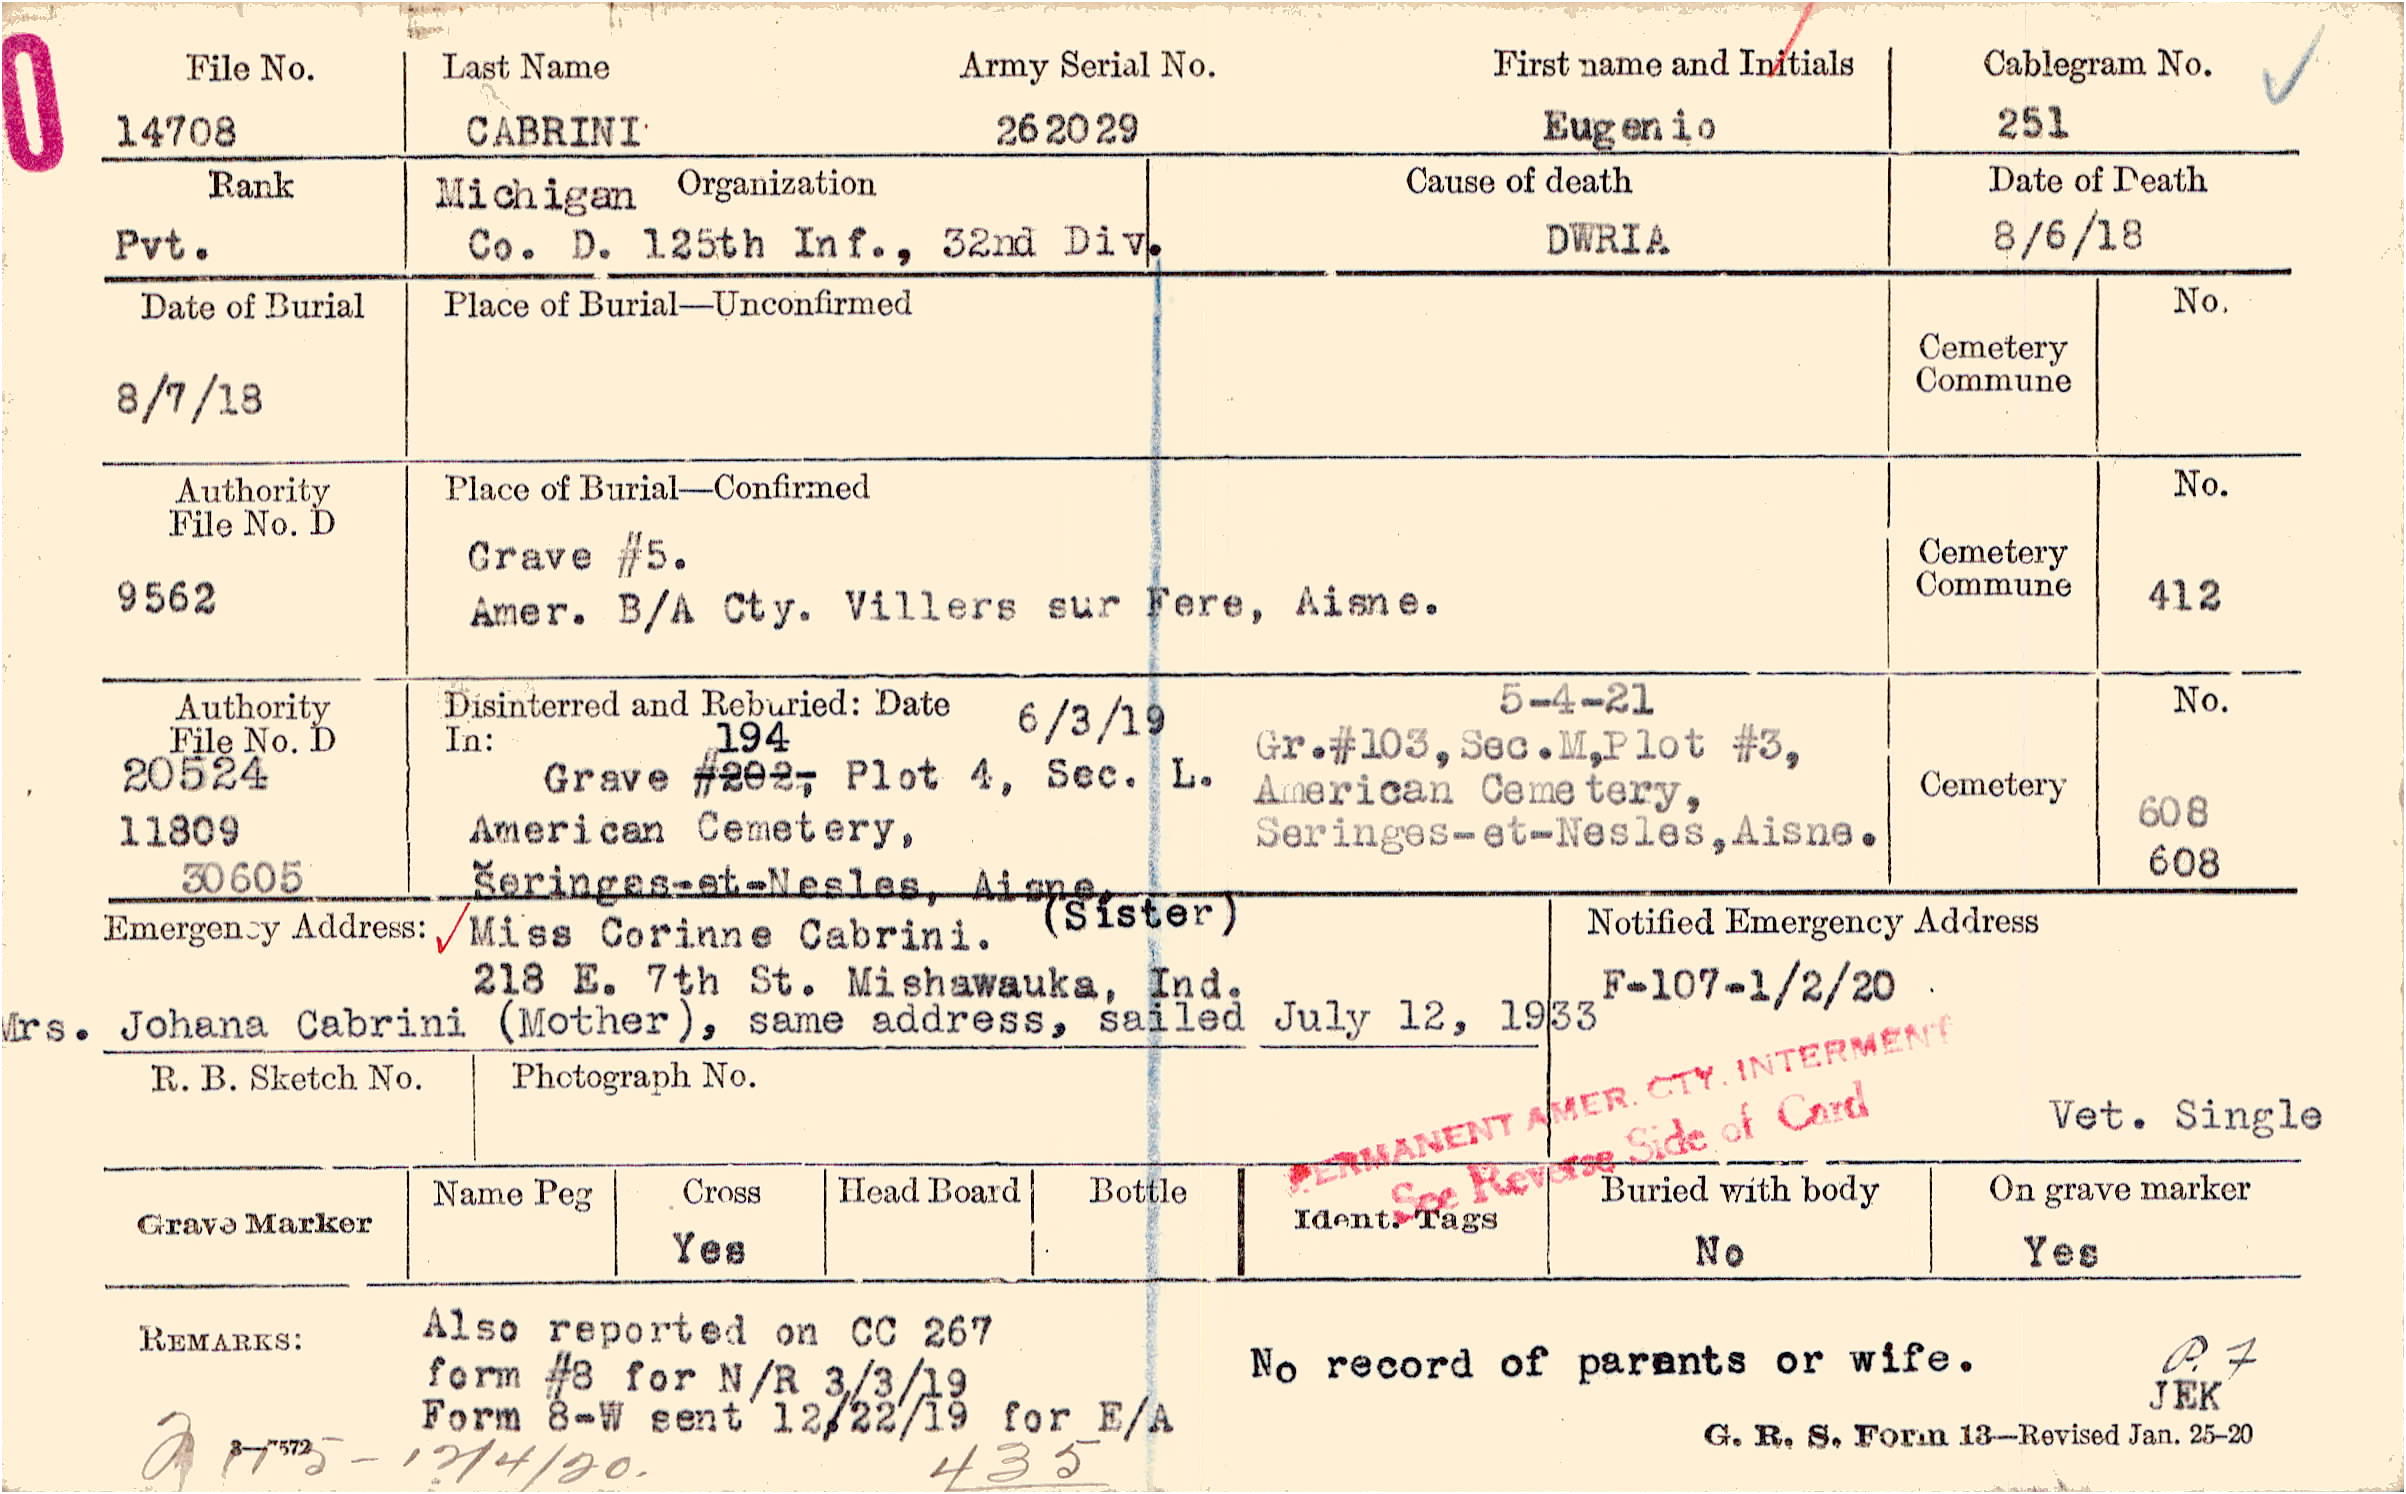 File No. Last Name Army Serial No. First name and Initials Cablegram No.
14708 CABRINI 262029 Eugenio 251
Rank Michigan Organization Cause of death Date of Death
Pvt. Co. D. 125th Inf., 32nd Div. DWRIA 8/6/18
Date of Burial Place of Burial—Unconfirmed No.
Cemetery
Commune
8/7/18
Authority Place of Burial—Confirmed No.
File No. D
Grave #5.
Cemetery
Commune
9562 Amer. B/A Cty. Villers sur Fere, Aisne. 412
Authority Disinterred and Reburied: Date 6/3/19 5-4-21 No.
File No. D In: 194 Gr.#103,Sec.M,Plot #3,
20524 Grave #202, Plot 4, Sec. L. American Cemetery, Cemetery 608
11809 American Cemetery, Seringes-et-Nesles,Aisne.
30605 Seringes-et-Nesles, Aisne. 608
Emergency Address: Miss Corinne Cabrini. (Sister) Notified Emergency Address
218 E. 7th St. Mishawauka, Ind. F-107-1/2/20
Mrs. Johana Cabrini (Mother), same address, sailed July 12, 1933
PERMANENT AMER. CTY. INTERMENT
See Reverse Side of Card
R. B. Sketch No. Photograph No.
Vet. Single
Grave Marker Name Peg Cross Head Board Bottle Ident. Tags Buried with body On grave marker
Yes No Yes
REMARKS: Also reported on CC 267
form #8 for N/R 3/3/19 No record of parents or wife. P. 7
Form 8-W sent 12/22/19 for E/A JEK
3—7572 G. R. S. Form 13—Revised Jan. 25-20
12/4/20. 435